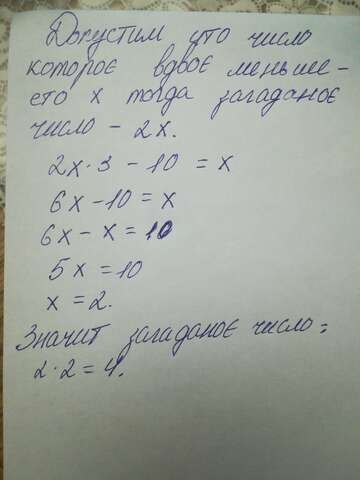 Допустим што число
котороє вдвоє меньше –
ето х тогда загаданоє
число – 2х.
2х · 3 – 10 = х
6х – 10 = х
6х – х = 10
5х = 10
х = 2.
Значит загаданоє число:
2 · 2 = 4.